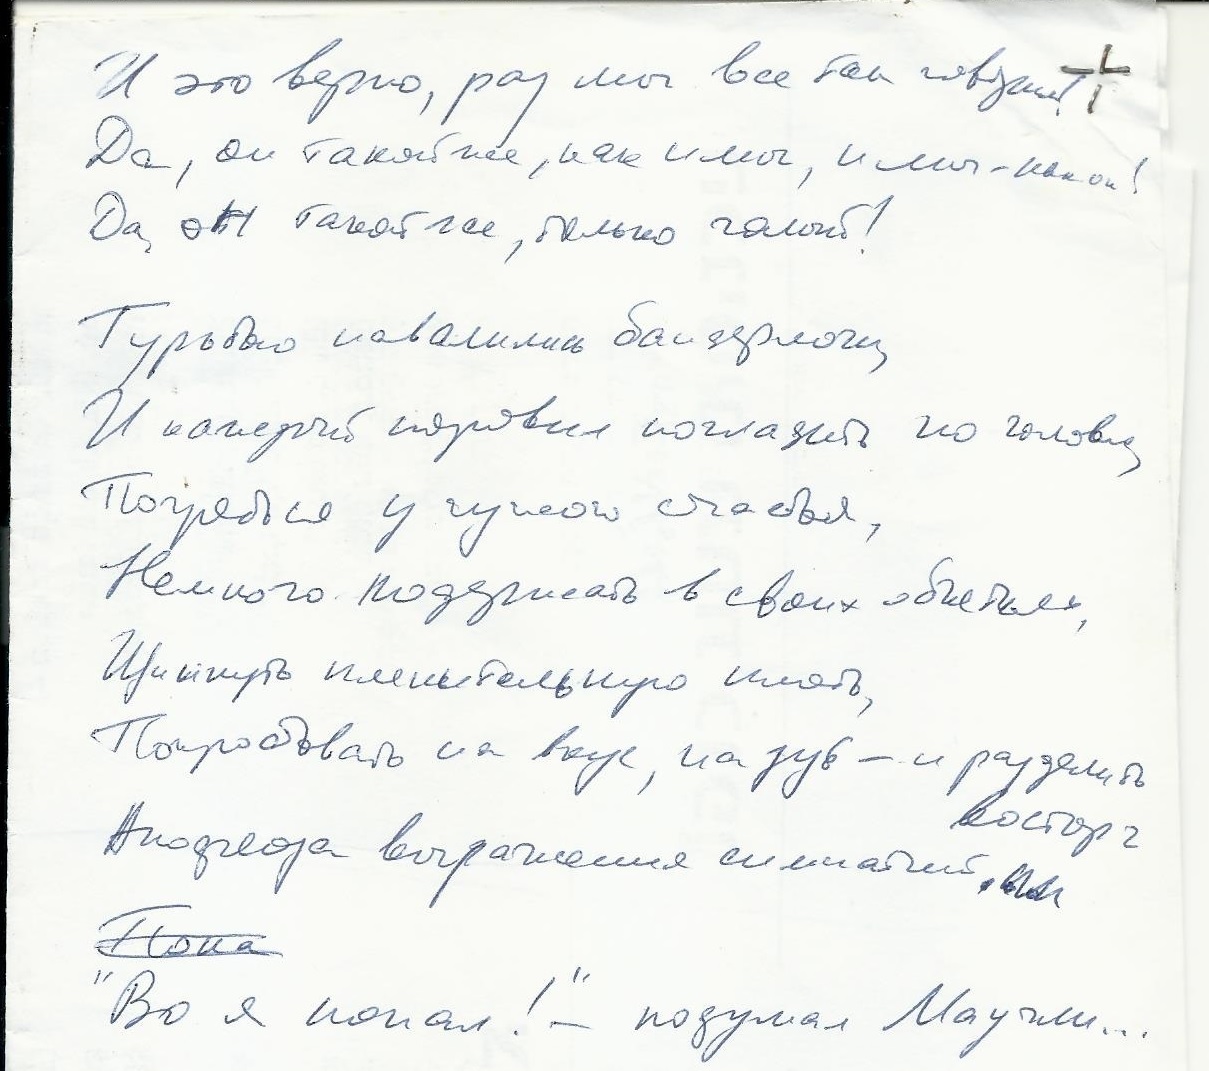 И это верно, раз мы все так говорим!
Да, он такой же, как и мы, и мы - такой!
Да, он такой же, только голый!
Гурьбою навалились бандерлоги,
И каждый норовил погладить по головке,
Погреться у чужого счастья,
Немного подержать в своих объятьях,
Щипнуть пленительную плоть,
Попробовать на вкус, на зуб – и разделить
восторг
Апофеоза выражения симпатий.
Пока
"Во я попал!" – подумал Маугли...